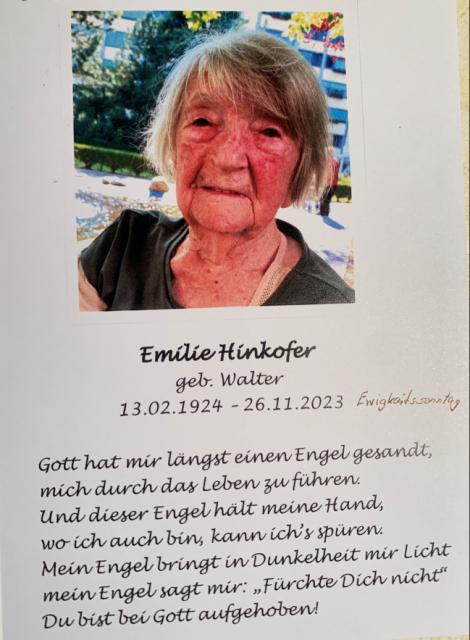 Emilie Hinkofer
geb. Walter
13.02.1924 - 26.11.2023 Ewigkeitssonntag
Gott hat mir längst einen Engel gesandt,
mich durch das Leben zu führen.
Und dieser Engel hält meine Hand,
wo ich auch bin, kann ich's spüren.
Mein Engel bringt in Dunkelheit mir Licht
mein Engel sagt mir: „Fürchte Dich nicht"
Du bist bei Gott aufgehoben!